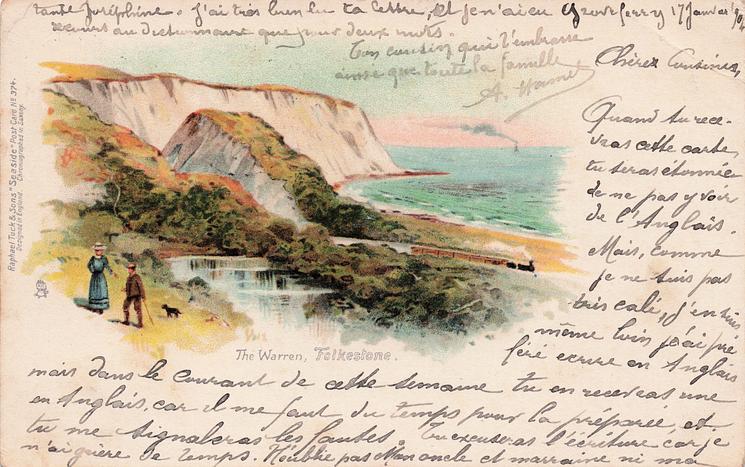 Groveferry 17 Janvier 1904
Chères Cousines,
Quand tu rece-
vras cette carte,
tu seras étonnée
de ne pas y voir
de l'Anglais.
Mais, comme
je ne suis pas
très calé, j'en suis
même loin, j'ai pré
féré écrire en Anglais
mais dans le courant de cette semaine tu en recevras une
en Anglais, car il me faut du temps pour la préparée, et
tu me signaleras les fautes. Tu excuseras l'écriture car je
n'ai guère de temps. N'oublie pas Mon oncle et marraine ni ma
tante Joséphine. J'ai très bien lu ta lettre, et je n'ai eu
recours au dictionnaire que pour deux mots.
Ton cousin qui t'embrasse
ainsi que toute la famille
A.
Raphael Tuck & Sons' "Seaside" Post Card No 374.
Designed in England. Chromographed in Saxony.
The Warren, Folkestone.